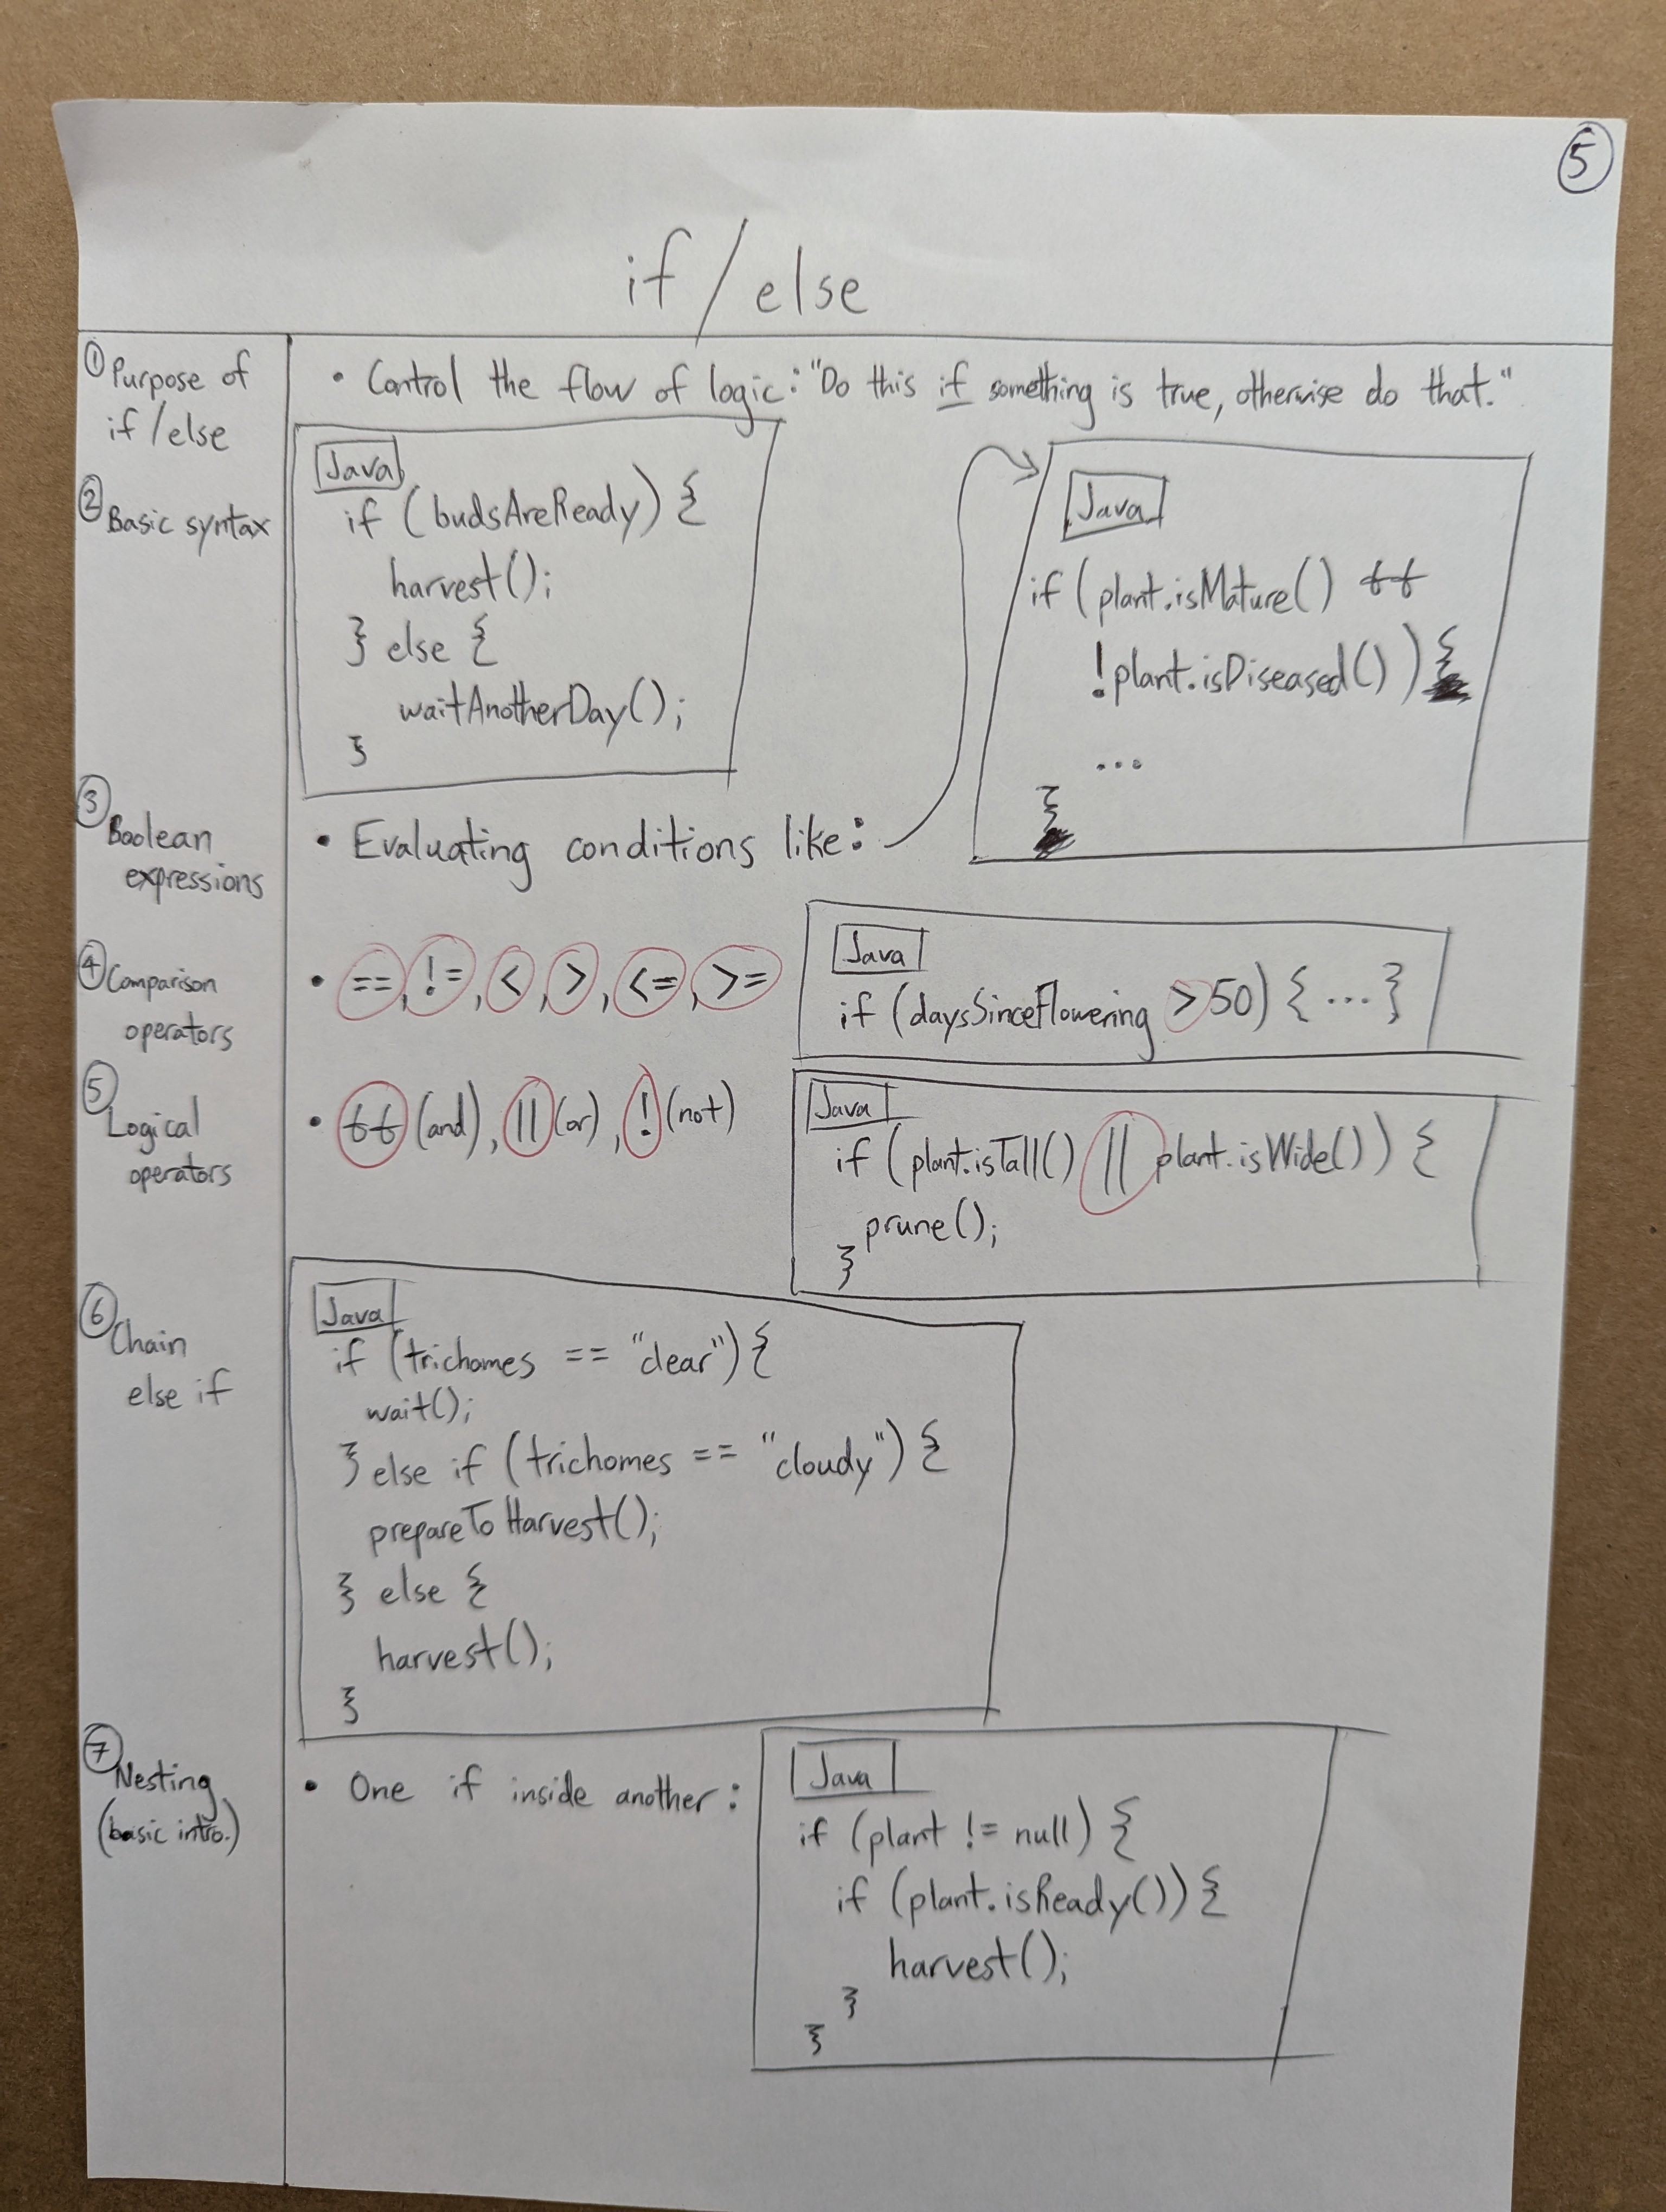 5
if / else
① Purpose of
if / else
• Control the flow of logic: "Do this if something is true, otherwise do that."
② Basic syntax
Java
if (budsAreReady) {
harvest();
} else {
waitAnotherDay();
}
③ Boolean
expressions
• Evaluating conditions like:
Java
if (plant.isMature() &&
!plant.isDiseased()) {
...
}
④ Comparison
operators
• ==, !=, <, >, <=, >=
Java
if (daysSinceFlowering > 50) { ... }
⑤ Logical
operators
• && (and), || (or), ! (not)
Java
if (plant.isTall() || plant.isWide()) {
prune();
}
⑥ Chain
else if
Java
if (trichomes == "clear") {
wait();
} else if (trichomes == "cloudy") {
prepareToHarvest();
} else {
harvest();
}
⑦ Nesting
(basic intro.)
• One if inside another:
Java
if (plant != null) {
if (plant.isReady()) {
harvest();
}
}